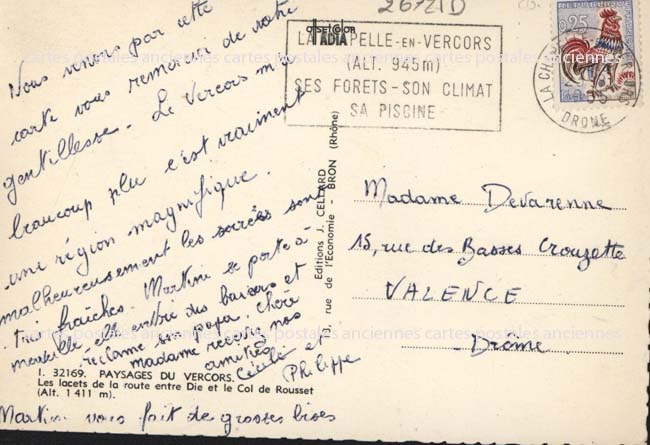 Nous venons par cette
carte vous remercier de votre
gentillesse. Le Vercors m'a
beaucoup plu c'est vraiment
une région magnifique.
malheureusement les soirées sont
très fraîches. Martine se porte à
merveille elle entre du baisers et
réclame son papa. Chère
madame recevez nos
amitiés
Cécile et
Philippe
Martine vous fait de grosses bises
I. 32169. PAYSAGES DU VERCORS.
Les lacets de la route entre Die et le Col de Rousset
(Alt. 1 411 m).
Editions J. CELLARD
rue de l'Economie - BRON (Rhône)
OFFSETCOLOR
IADIA
26721D
LA CHAPELLE-EN-VERCORS
(ALT. 945m)
SES FORETS-SON CLIMAT
SA PISCINE
0,25
DROME
Madame Devarenne
15, rue des Basses Crouzette
VALENCE
Drôme
cartes postales anciennes